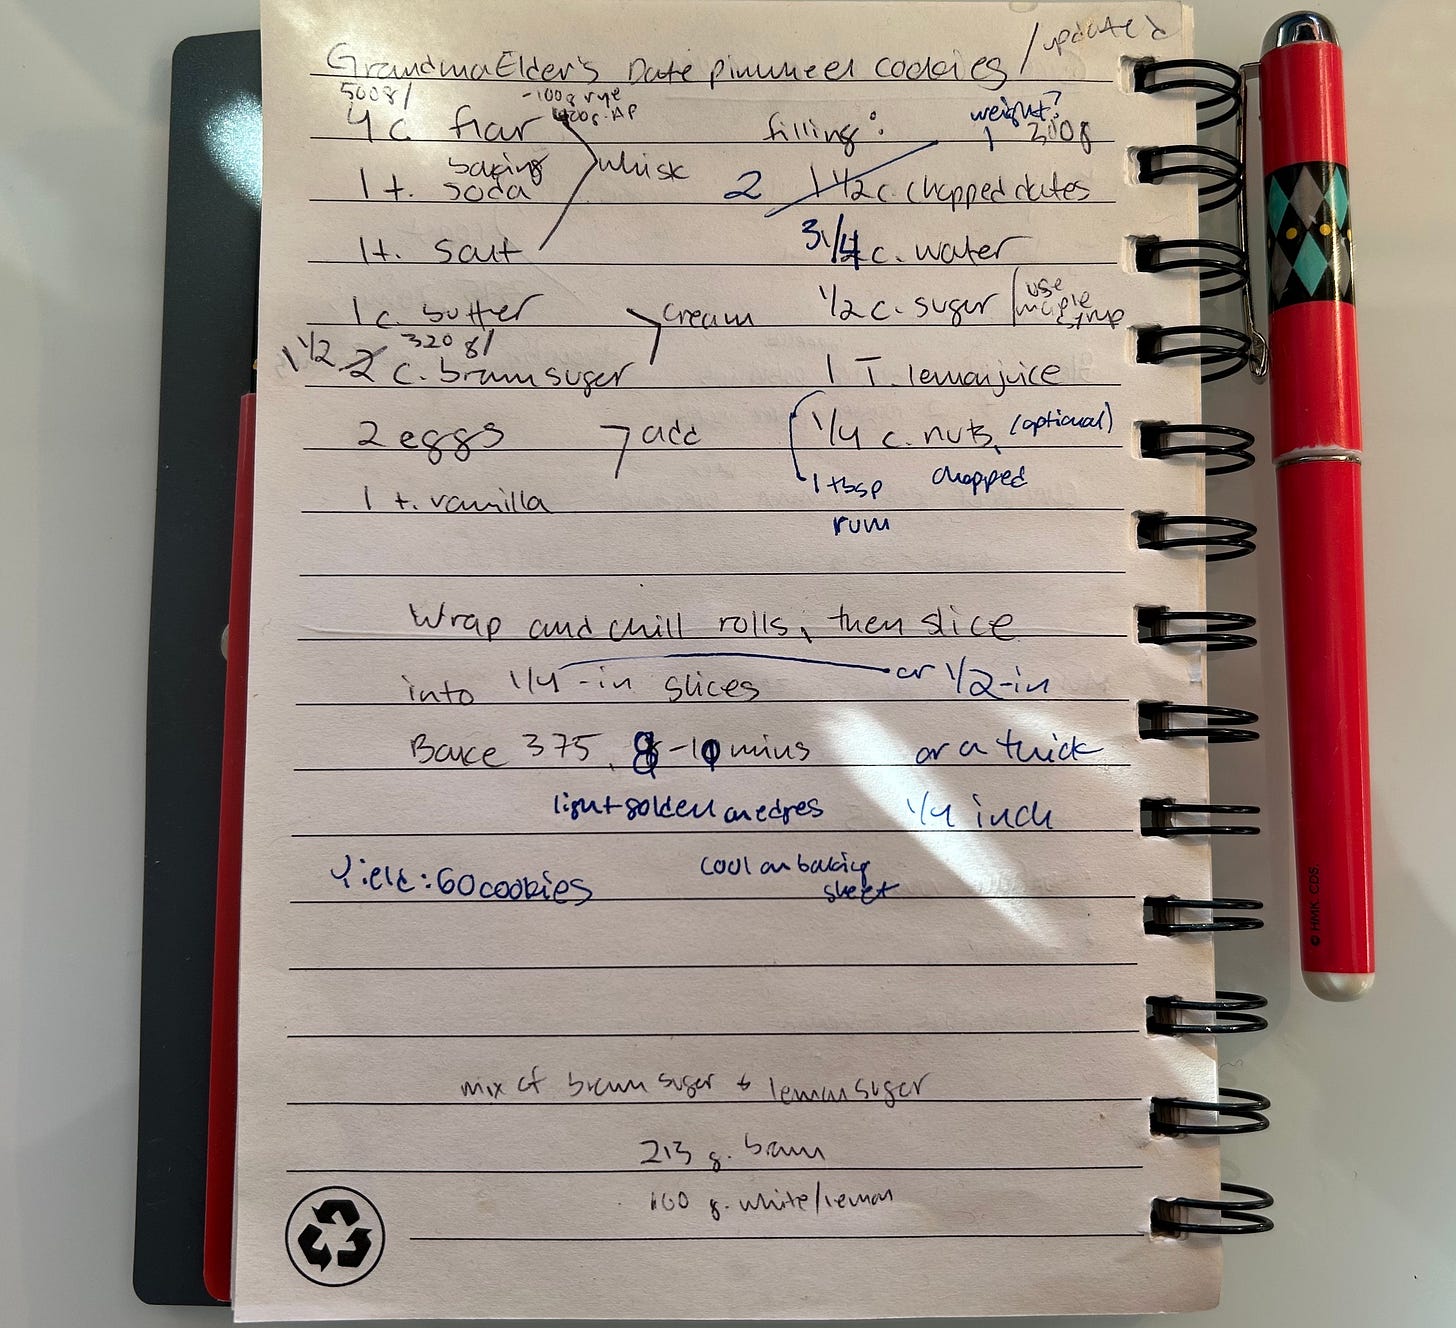 Grandma Elder's Date pinwheel cookies / updated
500g/
-100g rye
420g. AP
4 c. flour
1 t. baking soda
1 t. salt
whisk
1 c. butter
320 g/
1 1/2 2 c. brown sugar
cream
2 eggs
add
1 t. vanilla
filling:
weight?
2 1 1/2 c. chopped dates
3/4 c. water
1/2 c. sugar
use maple syrup
1 T. lemon juice
1/4 c. nuts, (optional)
chopped
1 tbsp
rum
Wrap and chill rolls, then slice
into 1/4-in slices or 1/2-in
or a thick
1/4 inch
Bake 375, 8-10 mins
light golden on edges
Yield: 60 cookies
cool on baking
sheet
mix of brown sugar & lemon sugar
213 g. brown
100 g. white/lemon
© HMK. CDS.